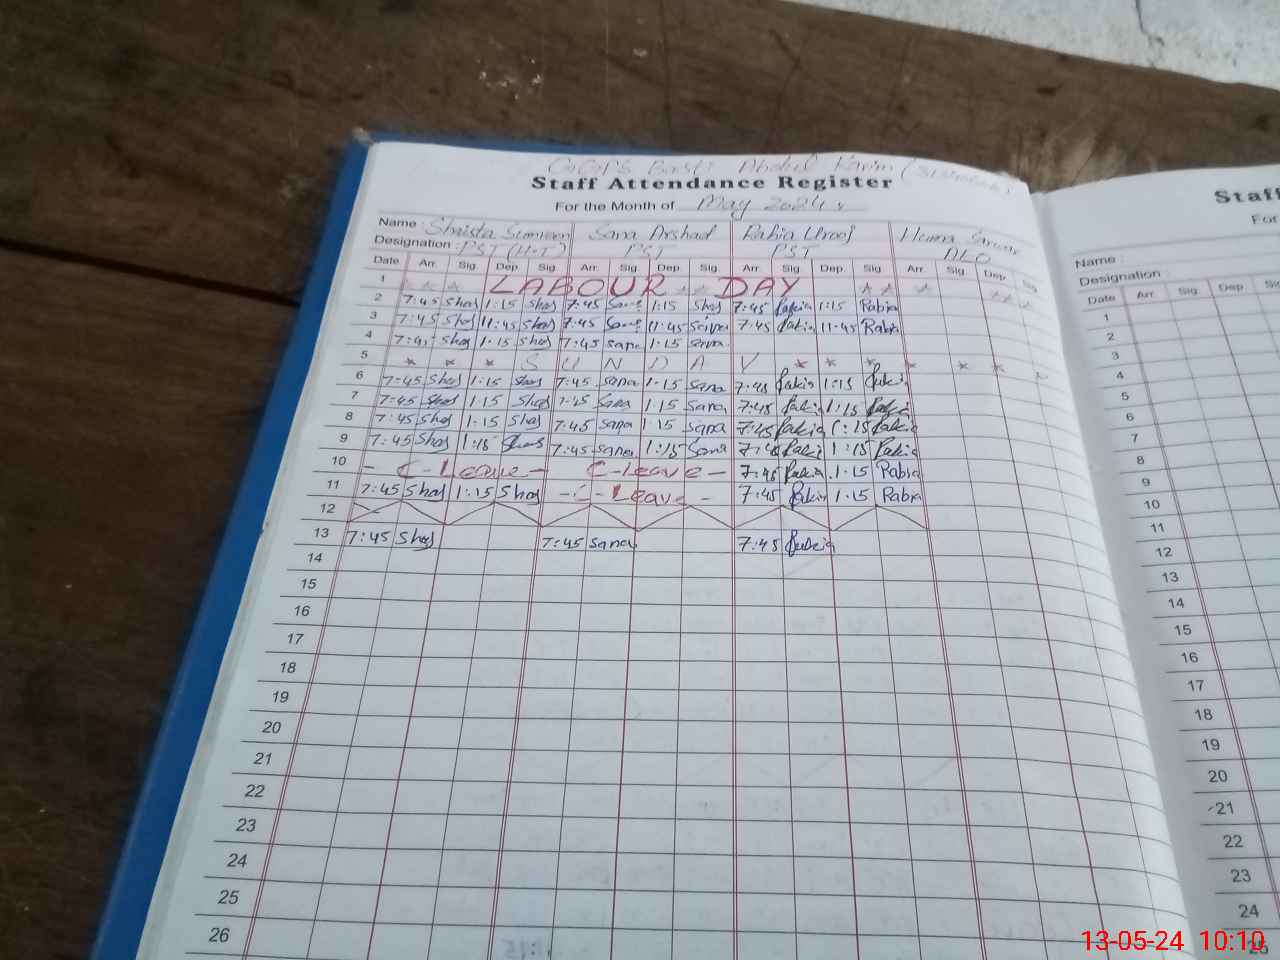 GGPS Basti Abdul Karim
Staff Attendance Register
For the Month of May 2024
Name : Shaista Sana Arshad Rabia Urooj Huma Sarwar
Designation : PST (H.T) PST PST
Date Arr. Sig. Dep. Sig. Arr. Sig. Dep. Sig. Arr. Sig. Dep. Sig. Arr. Sig. Dep. Sig.
1 LABOUR DAY
2 7:45 Shas 1:15 Shas 7:45 Sana 1:15 Shas 7:45 Rabia 1:15 Rabia
3 7:45 Shas 11:45 Shas 7:45 Sana 11:45 Sana 7:45 Rabia 11:45 Rabia
4 7:45 Shas 1:15 Shas 7:45 Sana 1:15 Sana
5 * * * S U N D A Y * * * * * *
6 7:45 Shas 1:15 Shas 7:45 Sana 1:15 Sana 7:45 Rabia 1:15 Rabia
7 7:45 Shas 1:15 Shas 7:45 Sana 1:15 Sana 7:45 Rabia 1:15 Rabia
8 7:45 Shas 1:15 Shas 7:45 Sana 1:15 Sana 7:45 Rabia 1:15 Rabia
9 7:45 Shas 1:15 Shas 7:45 Sana 1:15 Sana 7:45 Rabia 1:15 Rabia
10 - C-Leave - C-Leave - 7:45 Rabia 1:15 Rabia
11 7:45 Shas 1:15 Shas - C-Leave - 7:45 Rabia 1:15 Rabia
12
13 7:45 Shas 7:45 Sana 7:45 Rabia
14
15
16
17
18
19
20
21
22
23
24
25
26
Staff
For
Name :
Designation :
Date Arr. Sig. Dep. Sig.
1
2
3
4
5
6
7
8
9
10
11
12
13
14
15
16
17
18
19
20
21
22
23
24
25
13-05-24 10:10